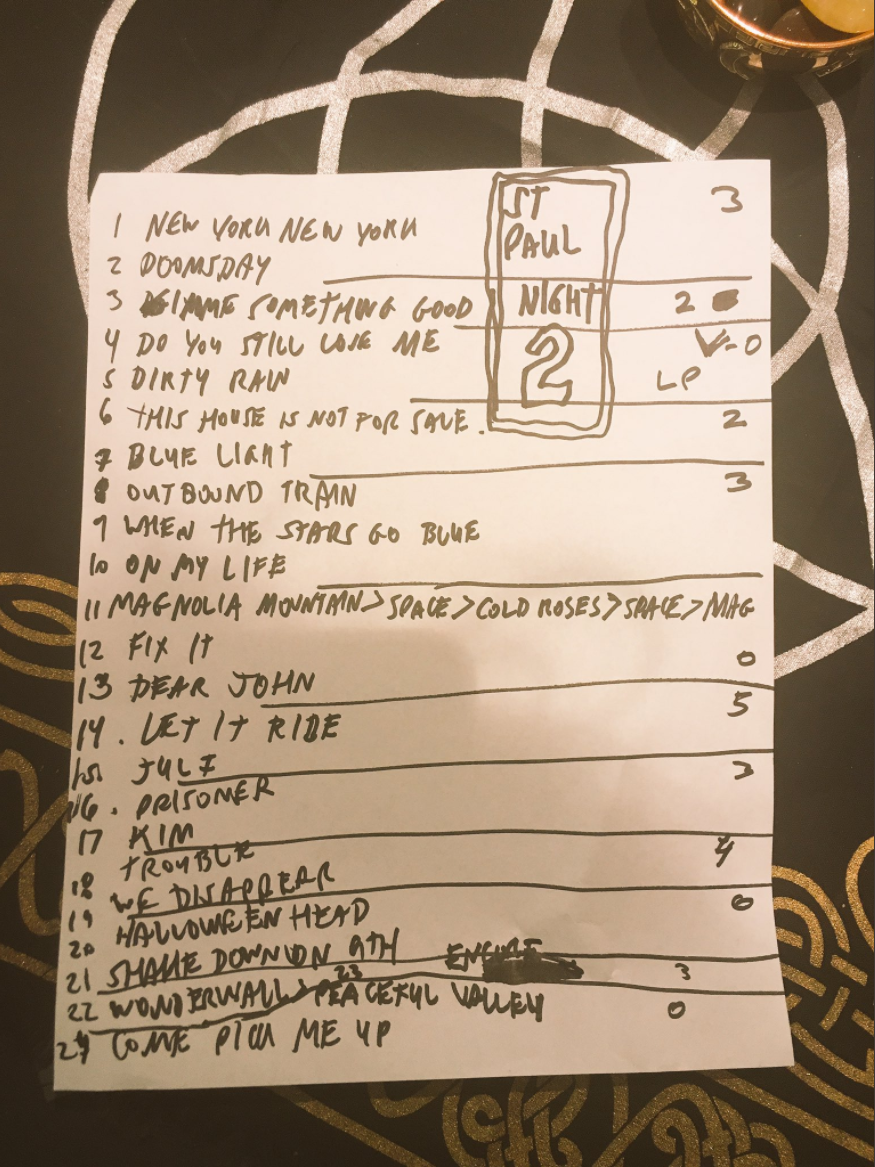 ST
3
PAUL
1 NEW YORK NEW YORK
2 DOOMSDAY
NIGHT
3 GIMME SOMETHING GOOD 2
4 DO YOU STILL LOVE ME V-0
2
5 DIRTY RAIN LP
6 THIS HOUSE IS NOT FOR SALE. 2
7 BLUE LIGHT
8 OUTBOUND TRAIN 3
9 WHEN THE STARS GO BLUE
10 ON MY LIFE
11 MAGNOLIA MOUNTAIN > SPACE > COLD ROSES > SPACE > MAG
12 FIX IT 0
13 DEAR JOHN
14. LET IT RIDE 5
15 JULI 3
16. PRISONER
17 KIM
18 TROUBLE 4
19 WE DISAPPEAR
20 HALLOWEEN HEAD 0
21 SHAKE DOWN ON 9TH ENCORE 3
22 WONDERWALL > 23 PEACEFUL VALLEY 0
24 COME PICK ME UP